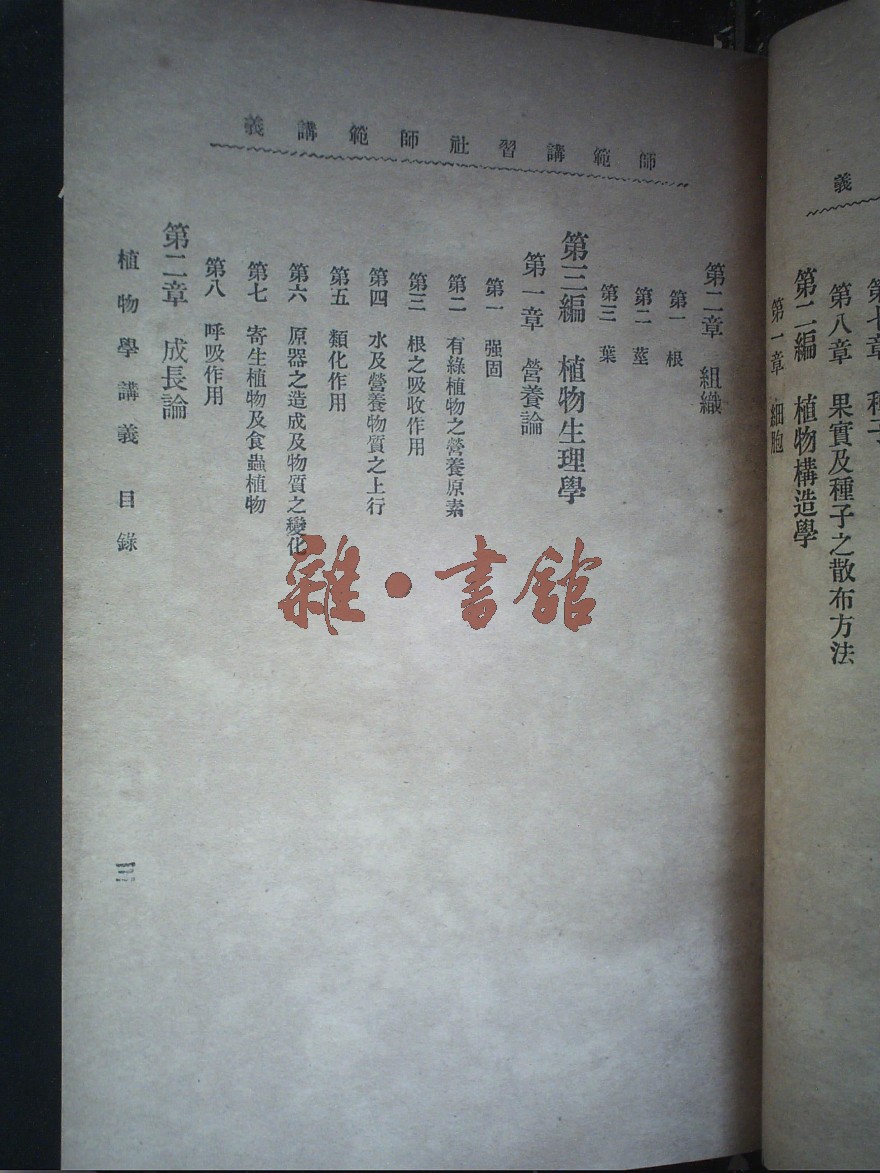 義
第七章 種子
第八章 果實及種子之散布方法
第二編 植物構造學
第一章 細胞
師範講習社師範講義
第二章 組織
第一 根
第二 莖
第三 葉
第三編 植物生理學
第一章 營養論
第一 强固
第二 有綠植物之營養原素
第三 根之吸收作用
第四 水及營養物質之上行
第五 類化作用
第六 原器之造成及物質之變化
第七 寄生植物及食蟲植物
第八 呼吸作用
第二章 成長論
植物學講義 目錄
三
雜·書館